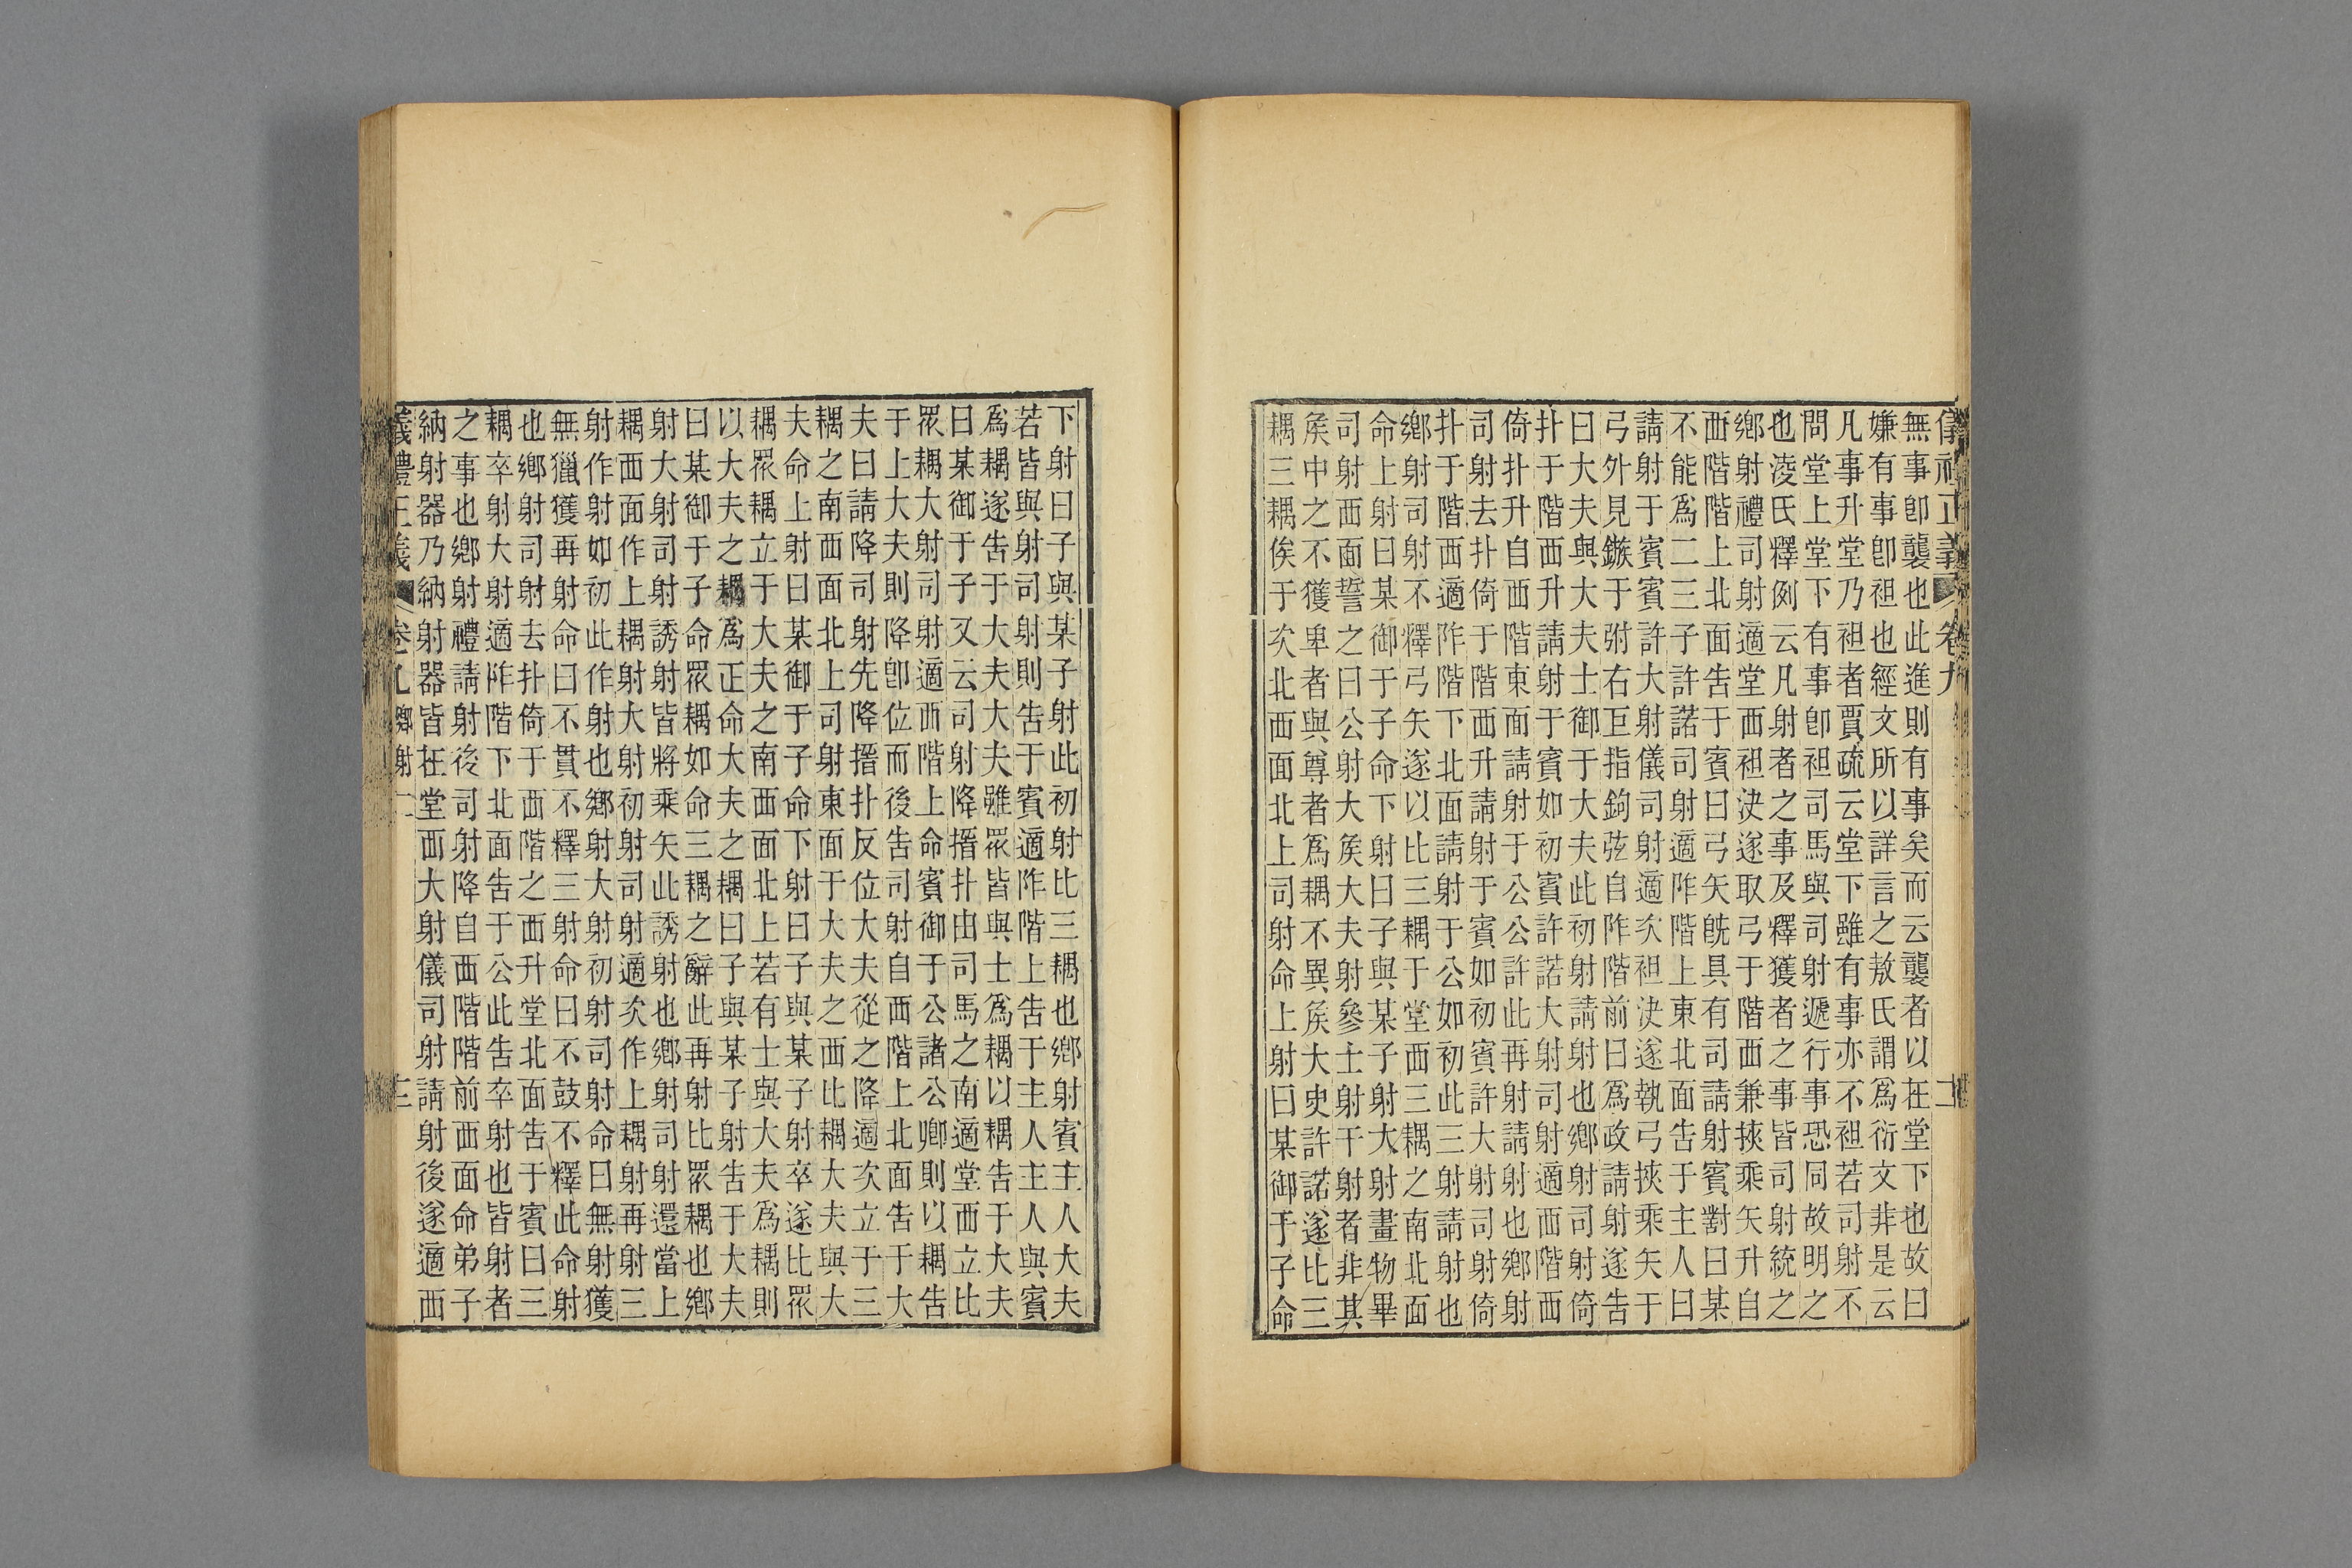 儀禮正義 卷九
無事卽襲也此進則有事矣而云襲者以在堂下也故曰
嫌有事卽袒也經文所以詳言之敖氏謂爲衍文非是云
凡事升堂乃袒者賈疏云堂下雖有事亦不袒若司射不
問堂上堂下有事卽袒司馬與司射遞行事恐同故明之
也淩氏釋例云凡射者之事及釋獲者之事皆司射統之
鄉射禮司射適堂西袒決遂取弓于階西兼挾乘矢升自
西階階上北面告于賓曰弓矢旣具有司請射賓對曰某
不能爲二三子許諾司射適阼階上東北面告于主人曰
請射于賓賓許大射儀司射適次袒決遂執弓挾乘矢于
弓外見鏃于弣右巨指鉤弦自阼階前曰爲政請射遂告
曰大夫與大夫士御于大夫此初射請射也鄉射司射倚
扑于階西升請射于賓如初賓許諾大射司射適西階西
倚扑升自西階東面請射于公公許此再射請射也鄉射
司射去扑倚于階西升請射于賓如初賓許大射司射倚
扑于階西適阼階下北面請射于公如初此三射請射也
鄉射司射不釋弓矢遂以比三耦于堂西三耦之南北面
命上射曰某御于子命下射曰子與某子射大射畫物畢
司射西面誓之曰公射大侯大夫射參士射干射者非其
侯中之不獲卑者與尊者爲耦不異侯大史許諾遂比三
耦三耦俟于次北西面北上司射命上射曰某御于子命
下射曰子與某子射此初射比三耦也鄉射賓主人大夫
若皆與射司射則告于賓適阼階上告于主人主人與賓
爲耦遂告于大夫大夫雖衆皆與士爲耦以耦告于大夫
曰某御于子又云司射降搢扑由司馬之南適堂西立比
衆耦大射司射適西階上命賓御于公諸公卿則以耦告
于上大夫則降卽位而後告司射自西階上北面告于大
夫曰請降司射先降搢扑反位大夫從之降適次立于三
耦之南西面北上司射東面于大夫之西比耦大夫與大
夫命上射曰某御于子命下射曰子與某子射卒遂比衆
耦衆耦立于大夫之南西面北上若有士與大夫爲耦則
以大夫之耦爲正命大夫之耦曰子與某子射告于大夫
曰某御于子命衆耦如命三耦之辭此再射比衆耦也鄉
射大射司射誘射皆將乘矢此誘射也鄉射司射還當上
耦西面作上耦射大射初射司射適次作上耦射再射三
射作射如初此作射也鄉射大射初射司射命曰無射獲
無獵獲再射命曰不貫不釋三射命曰不鼓不釋此命射
也鄉射司射去扑倚于西階之西升堂北面告于賓曰三
耦卒射大射適阼階下北面告于公此告卒射也皆射者
之事也鄉射禮請射後司射降自西階階前西面命弟子
納射器乃納射器皆在堂西大射儀司射請射後遂適西
儀禮正義 卷九 鄉射二